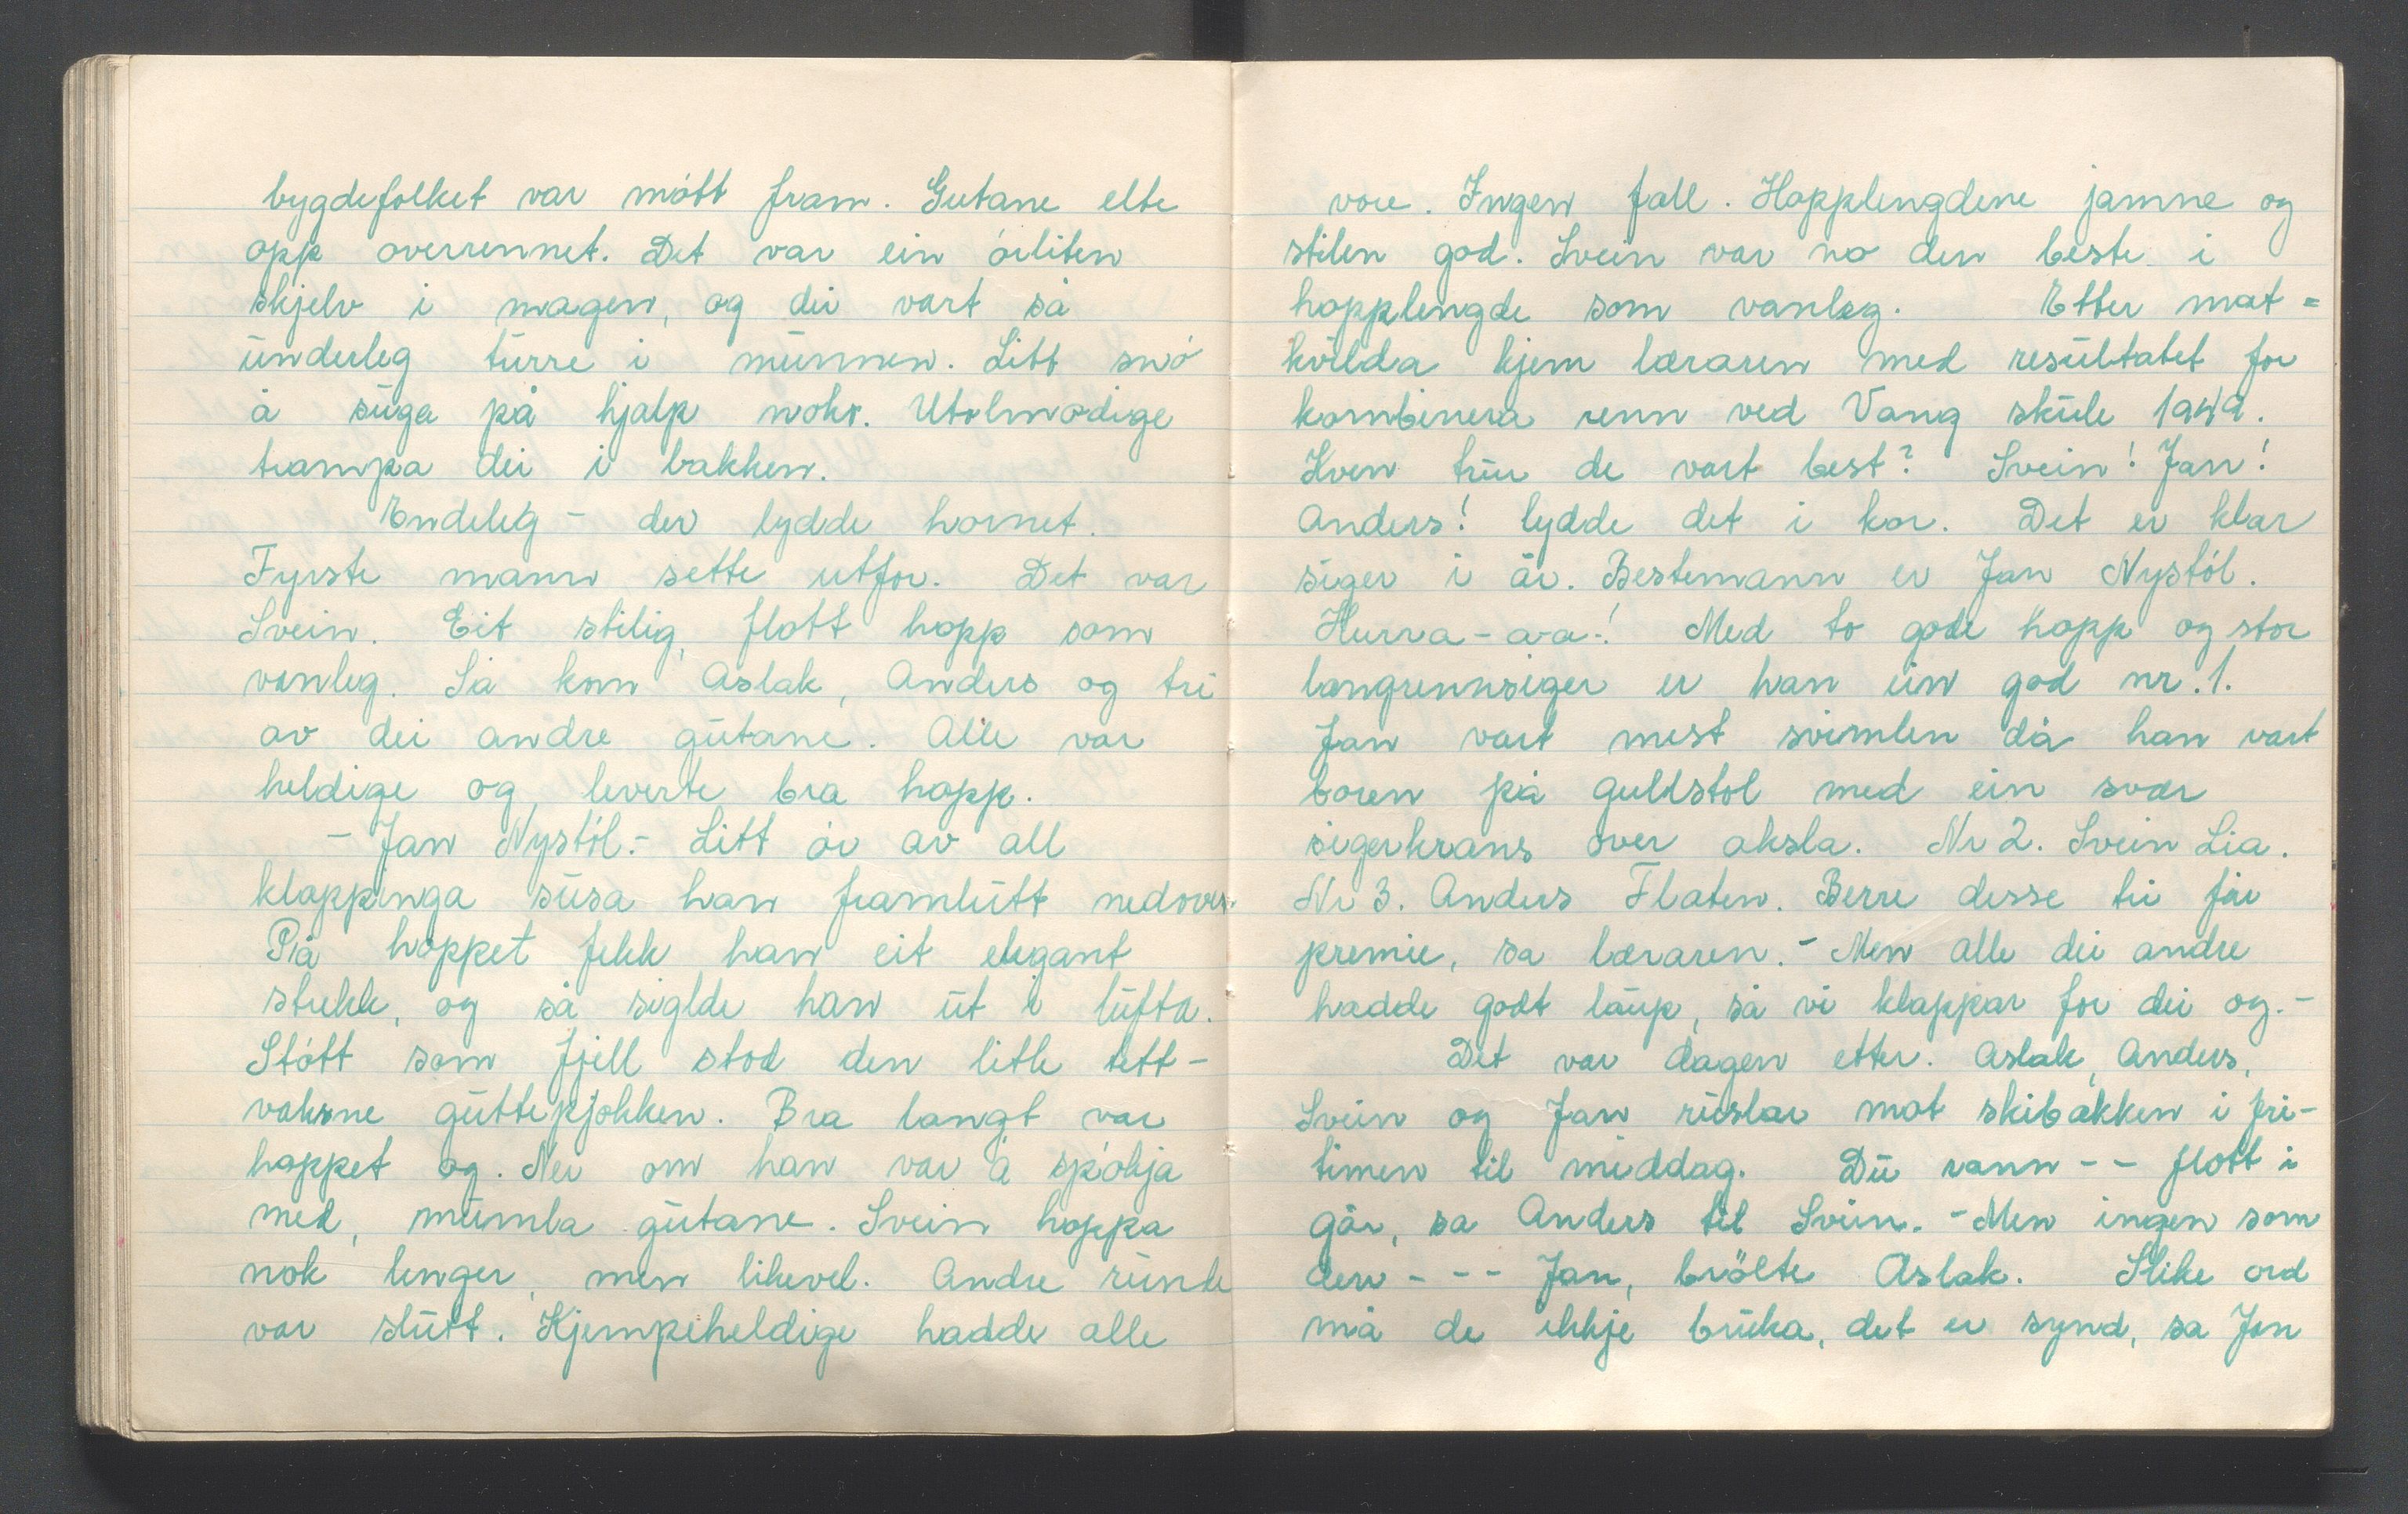 bygdefolket var møtt fram. Gutane elte
opp overrennet. Det var ein ørliten
skjelv i magen, og dei vart så
underleg turre i munnen. Litt snø
å suga på hjalp noko. Utolmodige
trampa dei i bakken.
Endeleg - der lydde hornet.
Fyrste mann sette utfor. Det var
Svein. Eit stilig, flott hopp som
vanleg. Så kom Aslak, Anders og tri
av dei andre gutane. Alle var
heldige og leverte bra hopp.
- Jan Nystøl. - Litt ør av all
klappinga susa han framlutt nedover.
På hoppet fekk han eit elegant
strekk, og så siglde han ut i lufta.
Støtt som fjell stod den litle tett-
vaksne guttepjokken. Bra langt var
hoppet og. Nei om han var å spøkja
med, mumla gutane. Svein hoppa
nok lenger, men likevel. Andre runde
var slutt. Kjempeheldige hadde alle
vore. Ingen fall. Hopplengdene jamne og
stilen god. Svein var no den beste i
hopplengde som vanleg. Etter mat=
kvilda kjem læraren med resultatet for
kombinera renn ved Vang skule 1949.
Kven trur de vart best? Svein! Jan!
Anders! lydde det i kor. Det er klar
siger i år. Bestemann er Jan Nystøl.
Hurra-a-a-! Med to gode hopp og stor
langrennsiger er han ein god nr. 1.
Jan vart mest svimlen då han vart
boren på gullstol med ein svær
sigerkrans over aksla. Nr 2. Svein Lia.
Nr 3. Anders Flaten. Berre desse tri får
premie, sa læraren. - Men alle dei andre
hadde godt laup, så vi klappar for dei og. -
Det var dagen etter. Aslak, Anders,
Svein og Jan ruslar mot skibakken i fri-
timen til middag. Du rann - - flott i
går, sa Anders til Svein. - Men ingen som
den - - - Jan, brølte Aslak. Slike ord
må de ikkje bruka, det er synd, sa Jan